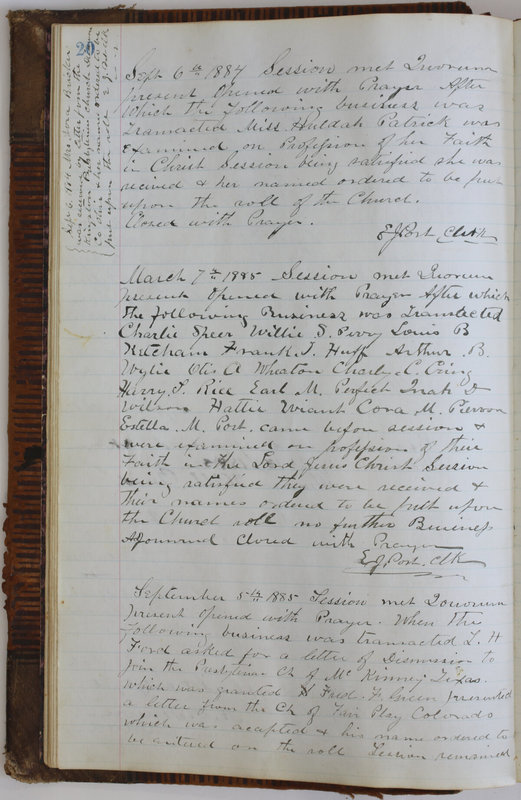 20
Sept 6th 1884 Session met Quorum
present Opened with Prayer After
Which the following business was
transacted Miss Huldah Patrick was
Examined on Profession of her Faith
in Christ Session being satisfied she was
recived & her named ordered to be put
upon the roll of the Church.
Closed with Prayer.
E J Post Clerk
March 7th 1885 Session met Quorum
present Opened with Prayer After which
the following Business was transacted
Charlie Speer Willie S. Perry Louis B
Ketcham Frank. J. Huff Arthur. B.
Wylie Otis A Wheaton Charly L
Harry. S. Rice Earl M. Perfect D
Wilson Hattie Wiant Cora M. Pierson
Estella. M. Post. came before session &
were examined on profession of their
Faith in the Lord Jesus Christ Session
being satisfied they were received &
their names ordered to be put upon
the Church roll no further Business
Adjourned Closed with Prayer
E. J. Post. Clk
September 5th 1885 Session met Quorum
present Opened with Prayer. When the
following business was transacted L. H
Ford asked for a letter of Dismission to
Join the Presbyterian Ch of Mc Kinney Texas.
Which was granted Fred. F. Green presented
a letter from the Ch of Fair Play Colorado
which was acepted & his name ordered to
be entered on the roll Session remained
Sept 6. 1884 Mrs
was received by letter from the
Kingston Presbyterian church
& her name ordered to be
put upon the roll E J Post Clk